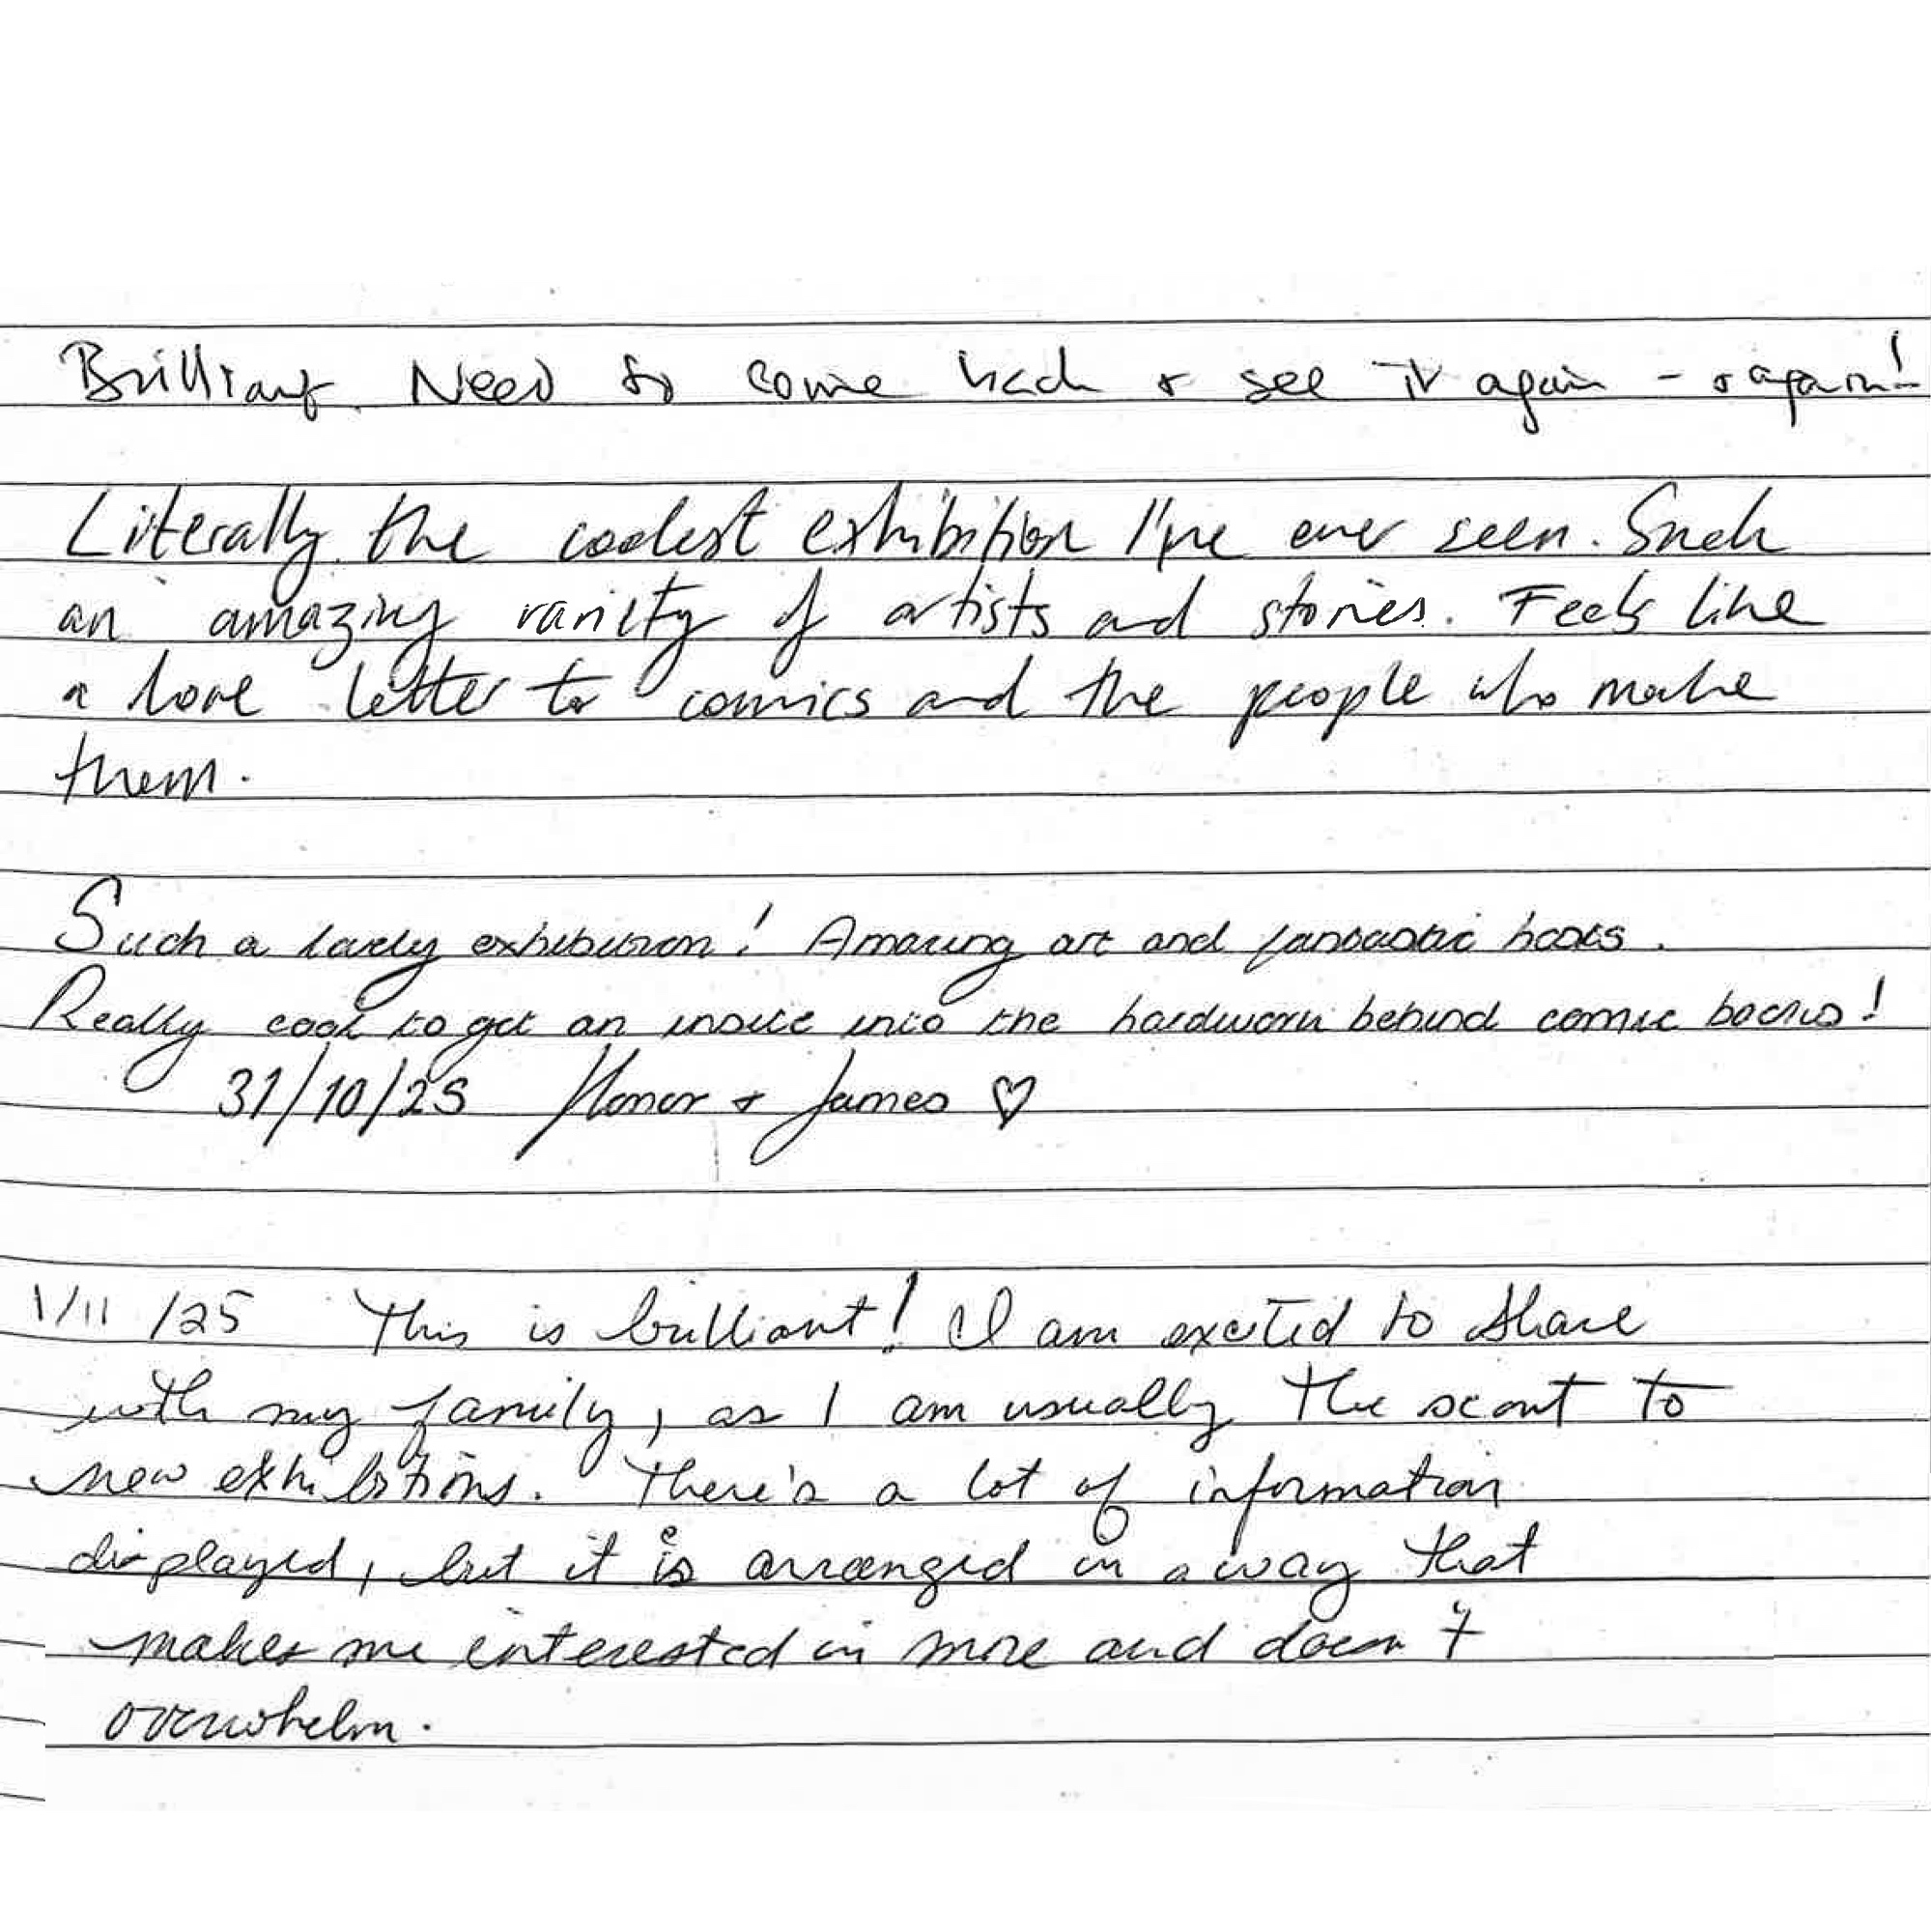 Brilliant. Need to come back + see it again - + again!
Literally the coolest exhibition I've ever seen. Such
an amazing variety of artists and stories. Feels like
a love letter to comics and the people who make
them.
Such a lovely exhibition! Amazing art and fantastic books.
Really cool to get an insite into the hardwork behind comic books!
31/10/25 Honor + James ♡
1/11/25 This is brilliant! I am excited to share
with my family, as I am usually the scout to
new exhibitions. There's a lot of information
displayed, but it is arranged in a way that
makes me interested in more and doesn't
overwhelm.